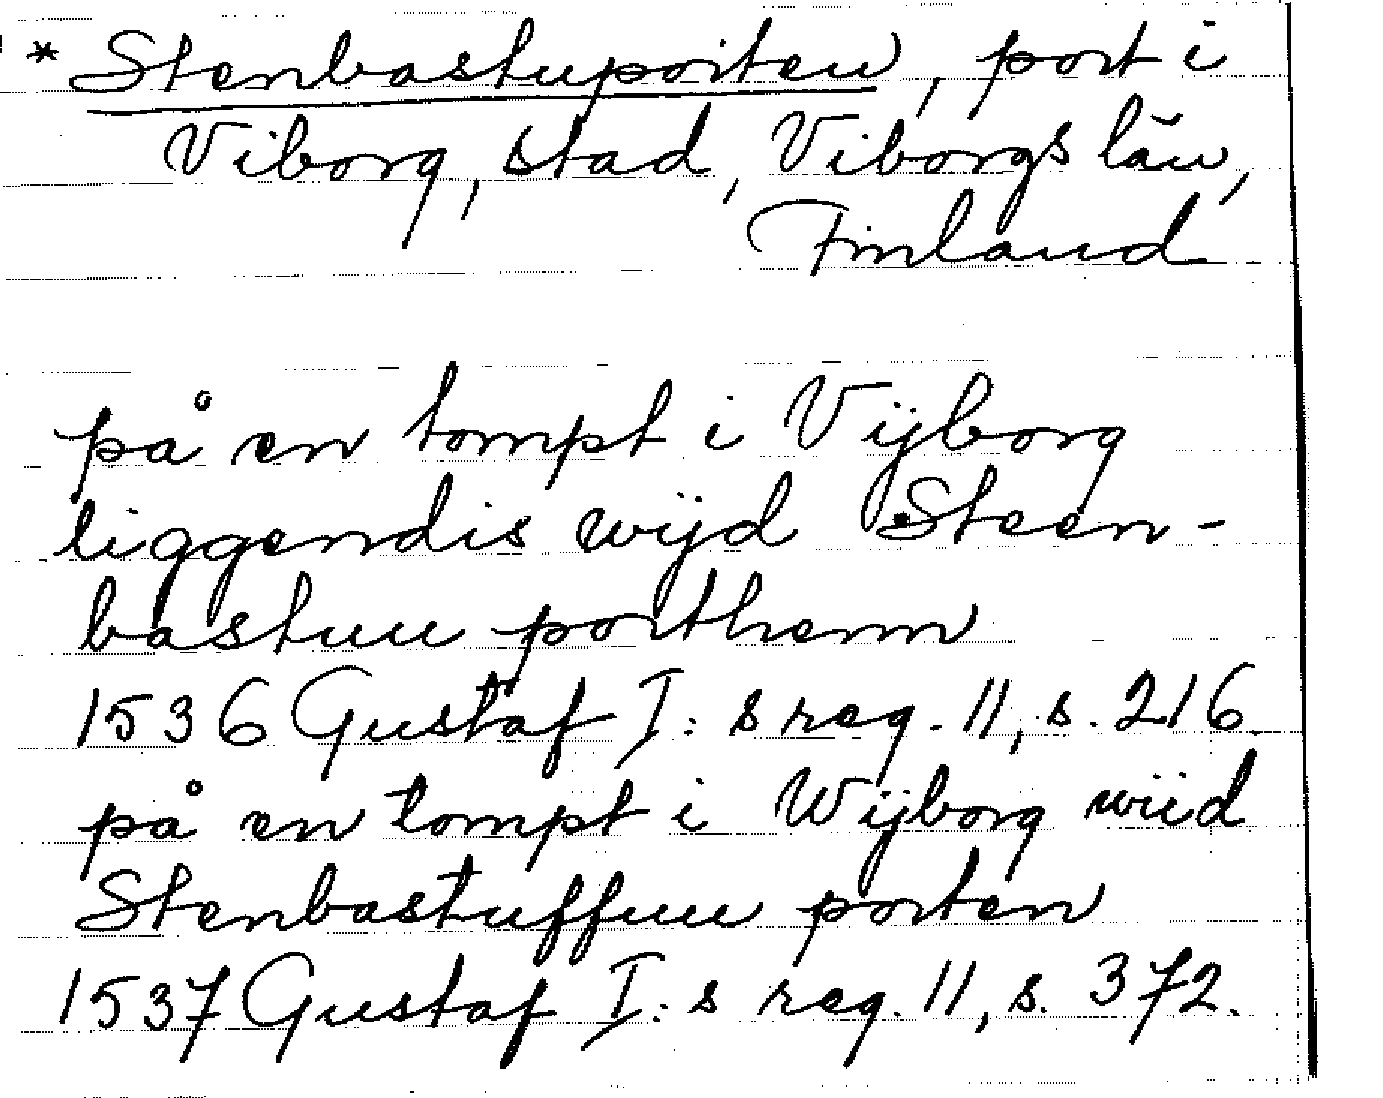 * Stenbastuporten, port i
Viborg, stad, Viborgs län,
Finland
på en tompt i Vijborg
liggendis wijd Steen-
bastuu porthenn
1536 Gustaf I:s reg. 11, s. 216.
på en tompt i Wijborg wiid
Stenbastuffuu porten
1537 Gustaf I:s reg. 11, s. 372.